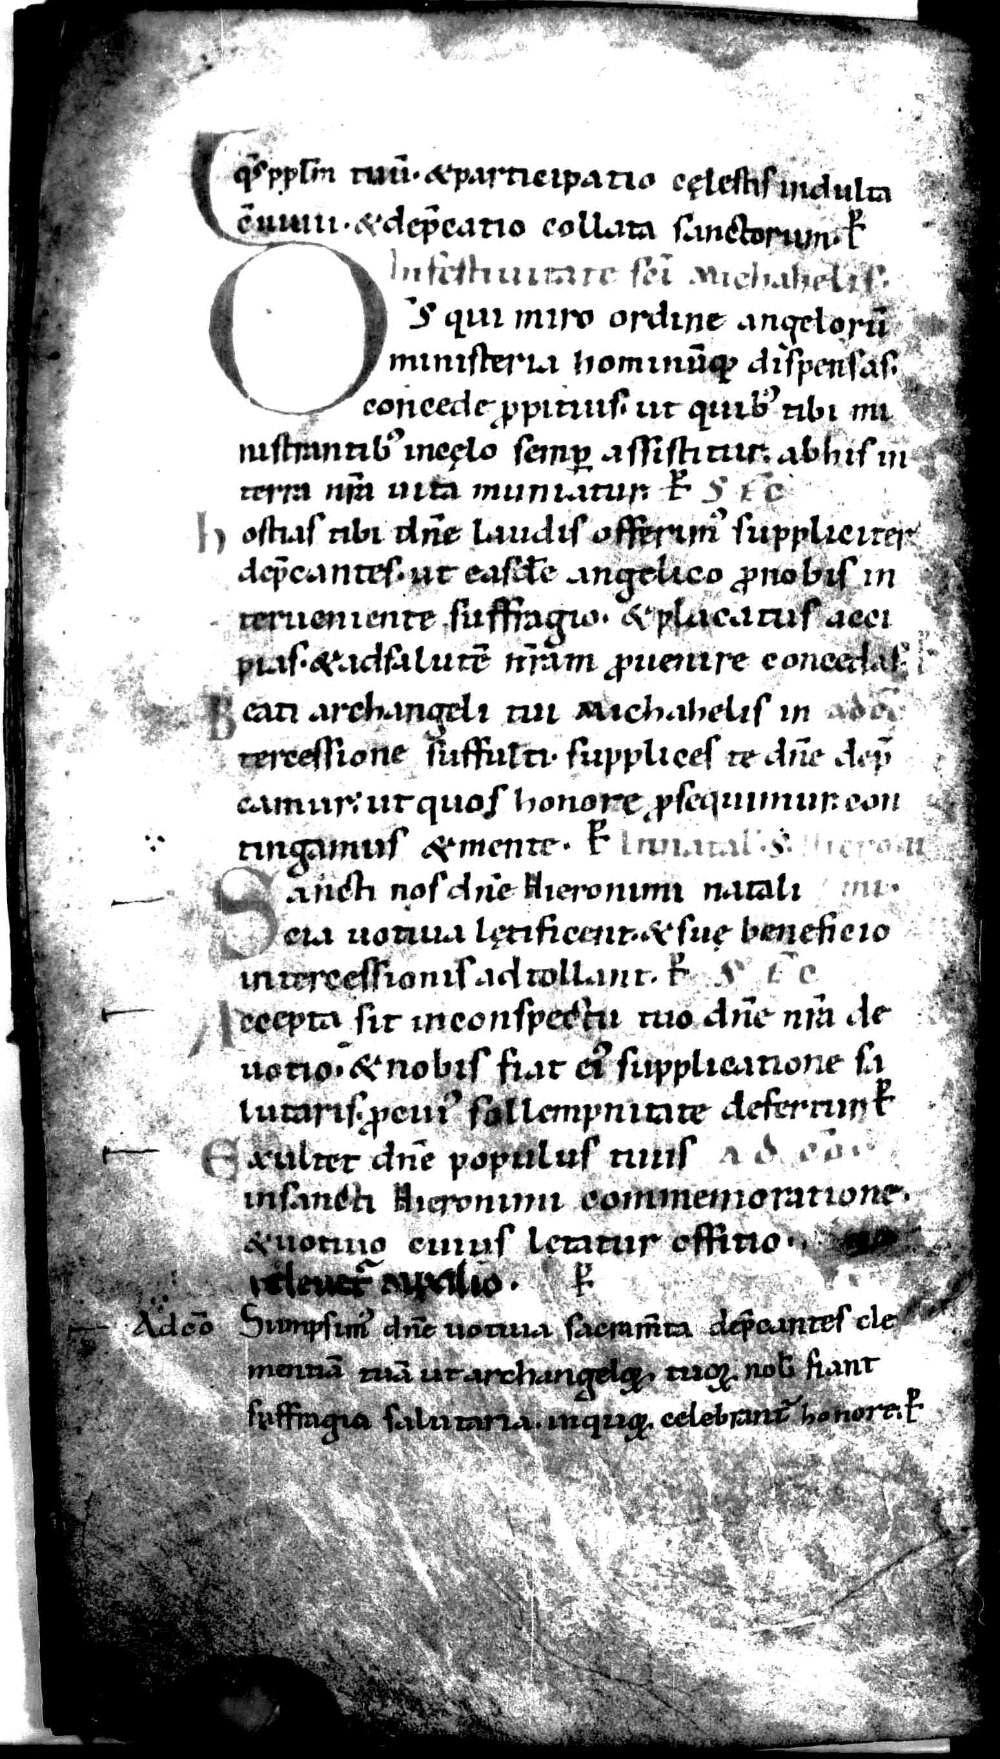 qs̄ pplm̄ tuū· &participatio cęlestis indulta
&dep̄catio collata sanctorum· ꝑ
In festiuitate sc̄i Michahelis·
D̄S qui miro ordine angelorū
ministeria hominūq; dispensas·
concede ꝓpitius· ut quib᾽ tibi mi
nistrantib᾽ incęlo semꝑ assistitur· abhis in
terra nr̄a uita muniatur· ꝑ S E C̄
hostias tibi dn̄e laudis offerim᾽ suppliciter
dep̄cantes· ut easdē angelico ꝓnobis in
terueniente suffragio· &placatus acci
pias· &adsalutē nr̄am ꝓuenire concedas·
Beati archangeli tui Michahelis in ad cō
tercessione suffulti· supplices te dn̄e dep̄
camur· ut quos honore ꝓsequimur· con
tingamus &mente· ꝑ In natal· S· Hieroni
Sancti nos dn̄e Hieronimi natali mi·
cia uotiua lętificent· &suę beneficio
intercessionis adtollant· ꝑ S E C̄
Accepta sit inconspectu tuo dn̄e nr̄a de
uotio· &nobis fiat ei᾽ supplicatione sa
lutaris· ꝓcui᾽ sollempnitate defertur ꝑ
Exultet dn̄e populus tuus ad cō·
insancti Hieronimi commemoratione·
&uotiuo cuius letatur offitio·
releuet᷑ auxilio· ꝑ
Adcō Sumpsim᾽ dn̄e uotiua sacram̄ta dep̄cantes cle
mentiā tuā ut archangeloꝝ tuoꝝ nob̄ fiant
suffragia salutaria· inquoꝝ celebrant᷑ honore· ꝑ